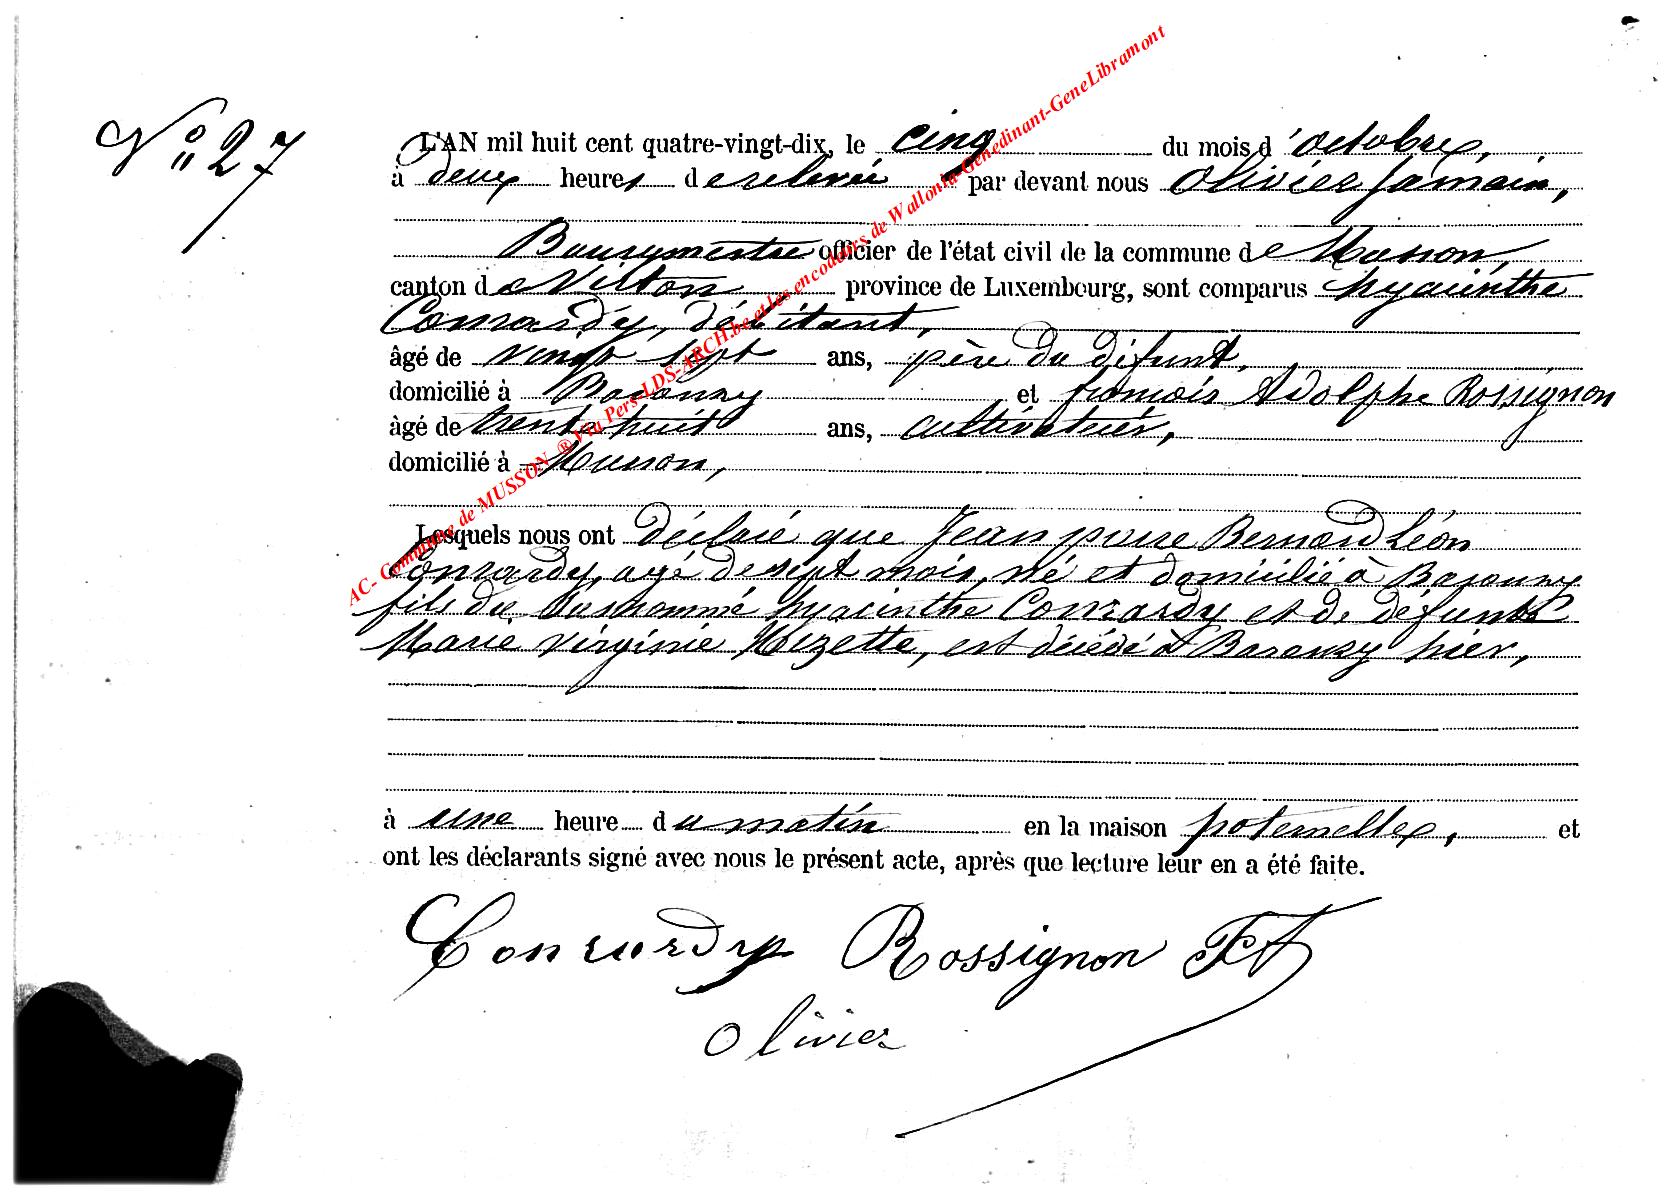 N° 27
L'AN mil huit cent quatre-vingt-dix, le cinq du mois d'octobre,
à deux heures de relevée par devant nous Olivier Jamain,
Bourgmestre officier de l'état civil de la commune de Musson,
canton de Virton province de Luxembourg, sont comparus hyacinthe
Conrardy, débitant,
âgé de vingt sept ans, père du défunt,
domicilié à Baranzy et françois Adolphe Rossignon
âgé de trente huit ans, cultivateur,
domicilié à Musson,
Lesquels nous ont déclaré que Jean pierre Bernard Léon
Conrardy, agé de sept mois, né et domicilié à Baranzy
fils du susnommé hyacinthe Conrardy et de défunte
Marie virginie Mizette, est décédé à Baranzy hier,
à une heure du matin en la maison paternelle, et
ont les déclarants signé avec nous le présent acte, après que lecture leur en a été faite.
Conrardy Rossignon FA
Olivier
AC- Commune de MUSSON ® Via Pers-LDS-ARCH.be et les encodeurs de Wallonia-Genedinant-GeneLibramont